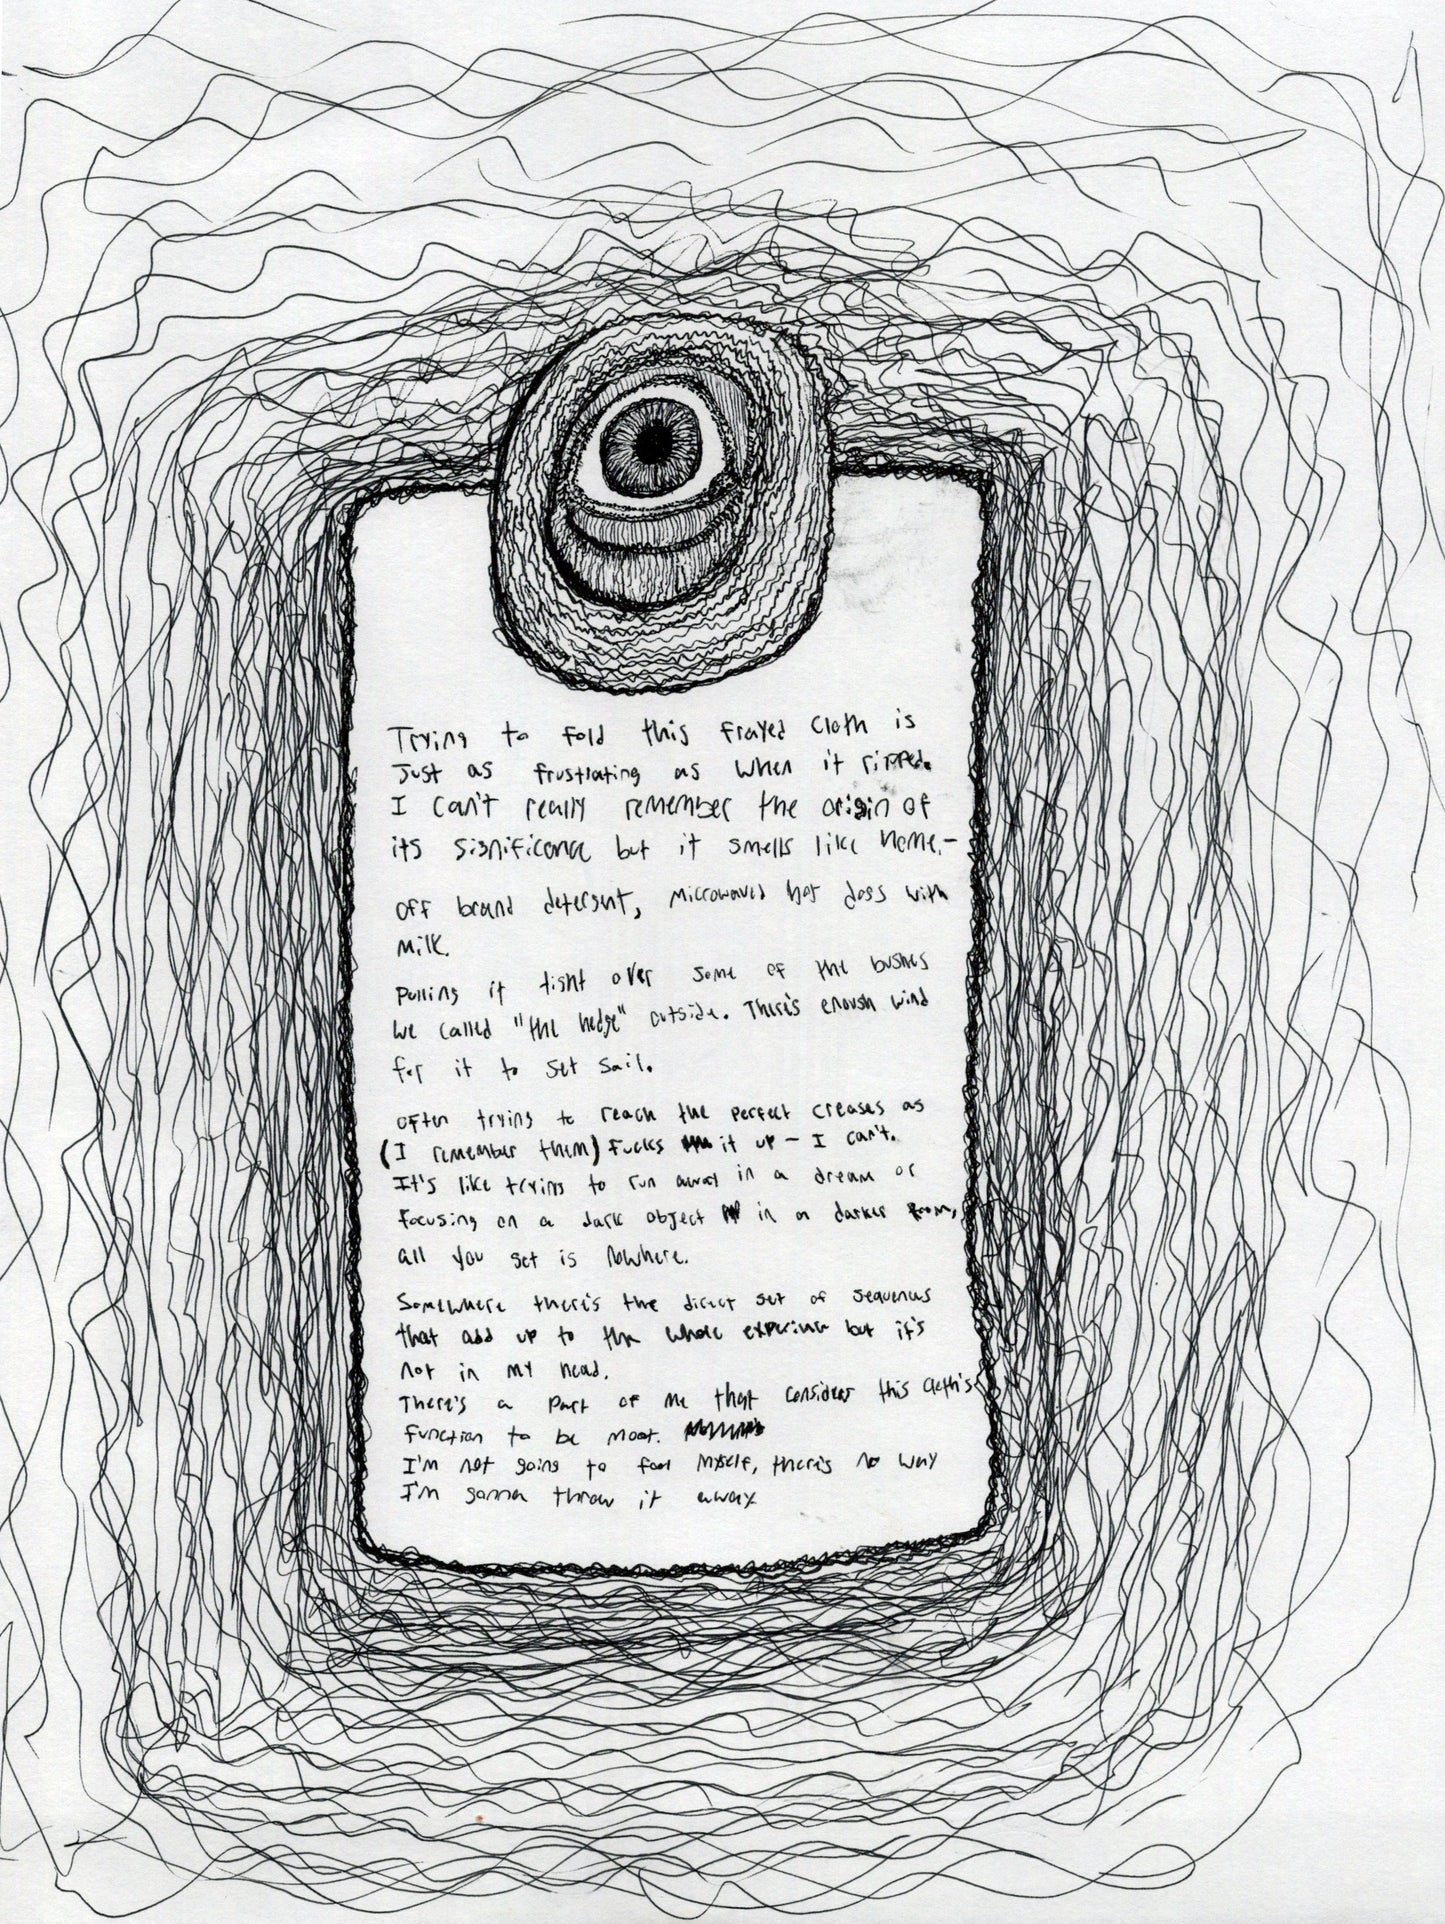 Trying to fold this frayed cloth is
Just as frustrating as when it ripped.
I can't really remember the origin of
its significance but it smells like home.-
off brand detergent, Microwaved hot dogs with
milk.
Pulling it tight over some of the bushes
we called "the hedge" outside. There's enough wind
for it to set sail.
often trying to reach the perfect creases as
(I remember them) fucks it up - I can't.
It's like trying to run away in a dream or
focusing on a dark object in a darker room,
all you get is Nowhere.
Somewhere there's the direct set of sequences
that add up to the whole experience but it's
not in my head.
There's a part of me that considers this cloth's
function to be moot.
I'm not going to fool myself, there's no way
I'm gonna throw it away